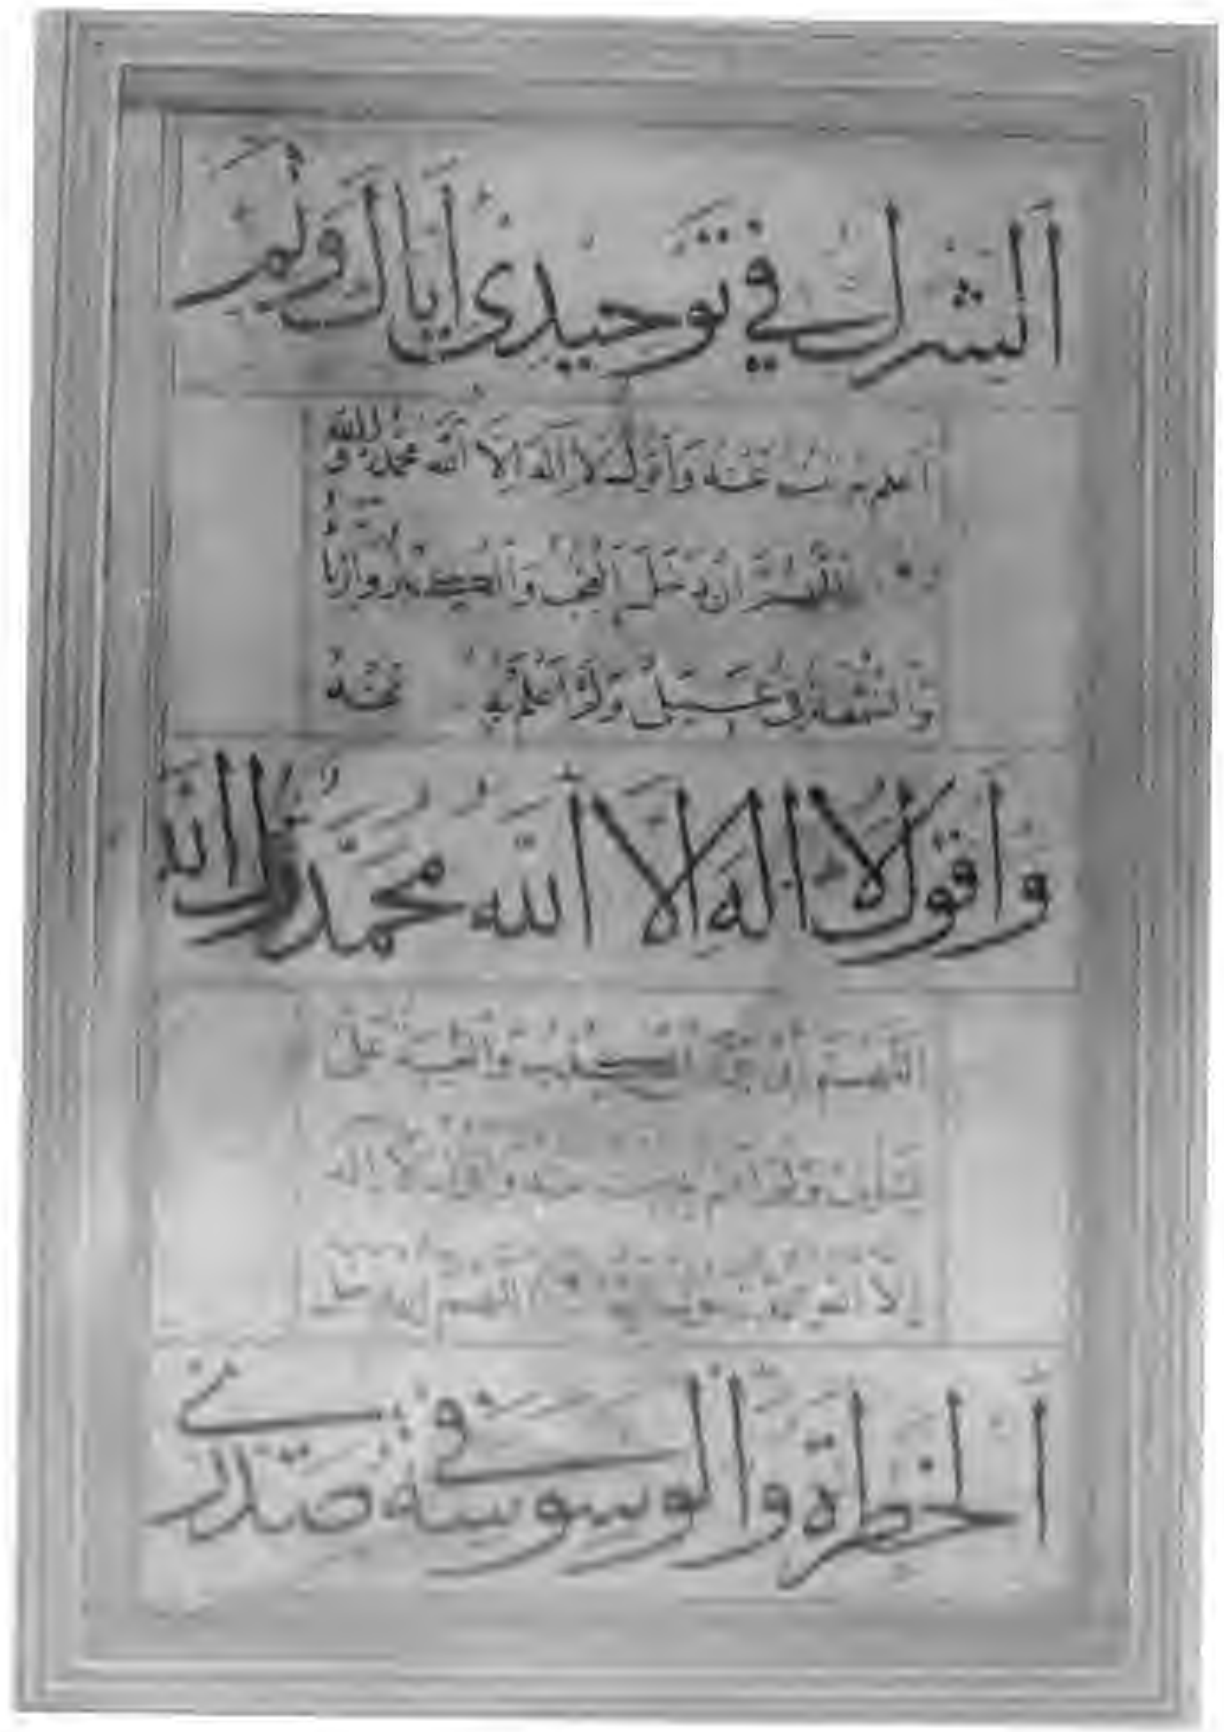 اَلشرك في توحيدى اياك ولم
اعلم به تبت عنه واقول لا اله الا الله محمد رسول الله
اللهم ان دخل العجب والكبر والريا
والسمعة في عملى ولم اعلم به تبت عنه
واقول لا اله الا الله محمد رسول الله
اللهم ان جرى الكذب والغيبة على
لسانى ولم اعلم به تبت عنه واقول لا اله
الا الله محمد رسول الله اللهم ان دخل
الخطرة والوسوسة في صدرى